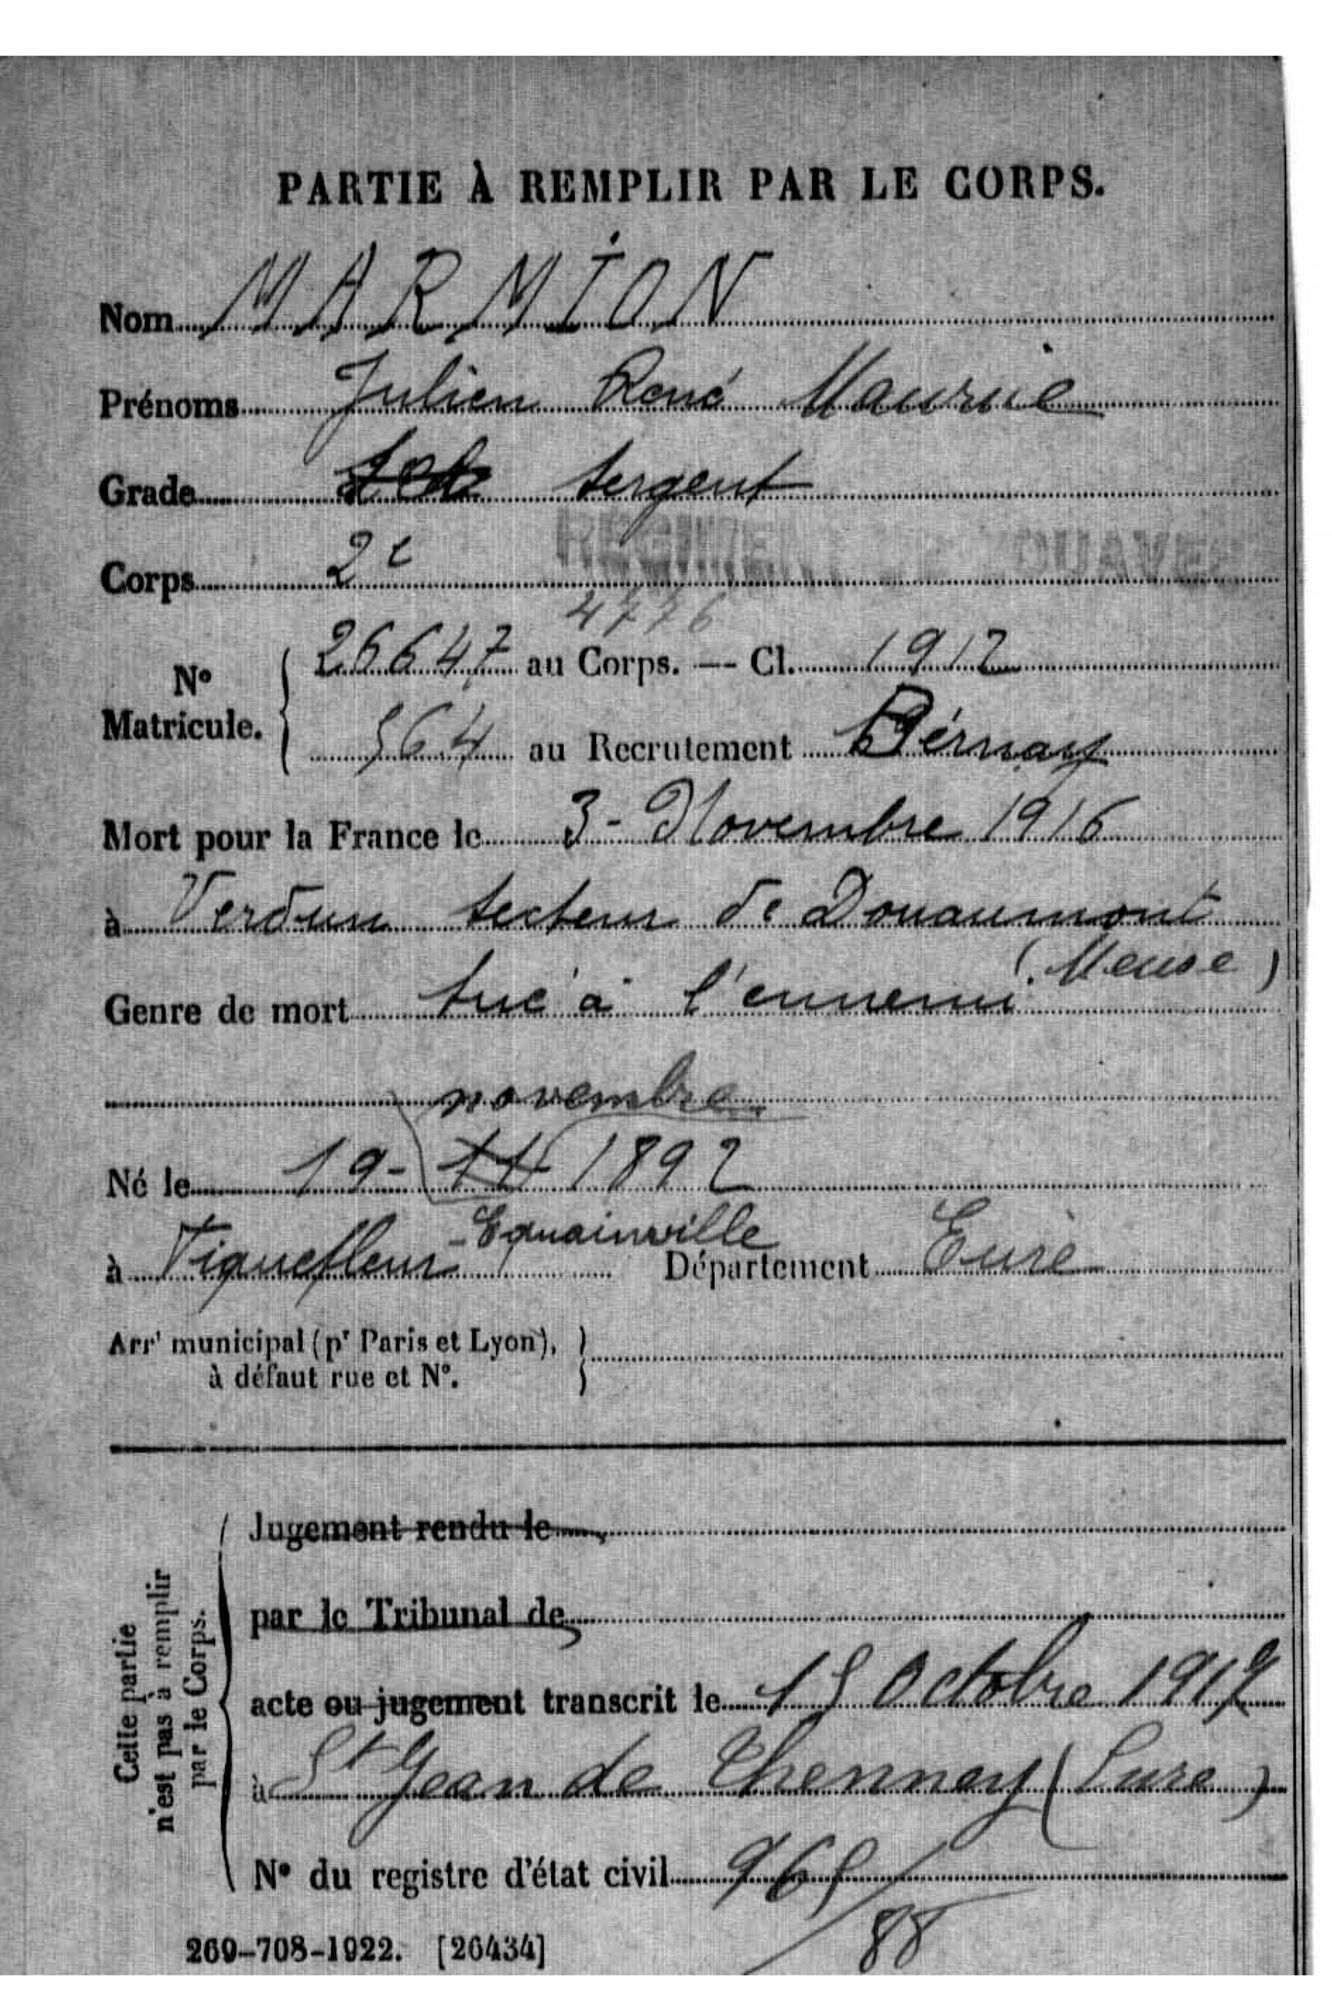 PARTIE À REMPLIR PAR LE CORPS.
Nom MARMION
Prénoms Julien René Maurice
Grade Sergent
Corps 2e RÉGIMENT DE ZOUAVES
4776
26647 au Corps. — Cl. 1912
N° Matricule.
564 au Recrutement Bernay
Mort pour la France le 3 - Novembre 1916
à Verdun secteur de Douaumont
(Meuse)
Genre de mort tué à l'ennemi
novembre
Né le 19 - 11 1892
à Fiquefleur - Equainville Département Eure
Arrt municipal (pr Paris et Lyon),
à défaut rue et N°.
Cette partie
n'est pas à remplir
par le Corps.
Jugement rendu le
par le Tribunal de
acte ou jugement transcrit le 15 Octobre 1917
à St Jean de Thenney (Eure)
N° du registre d'état civil 965/
88
269-708-1922. [26434]